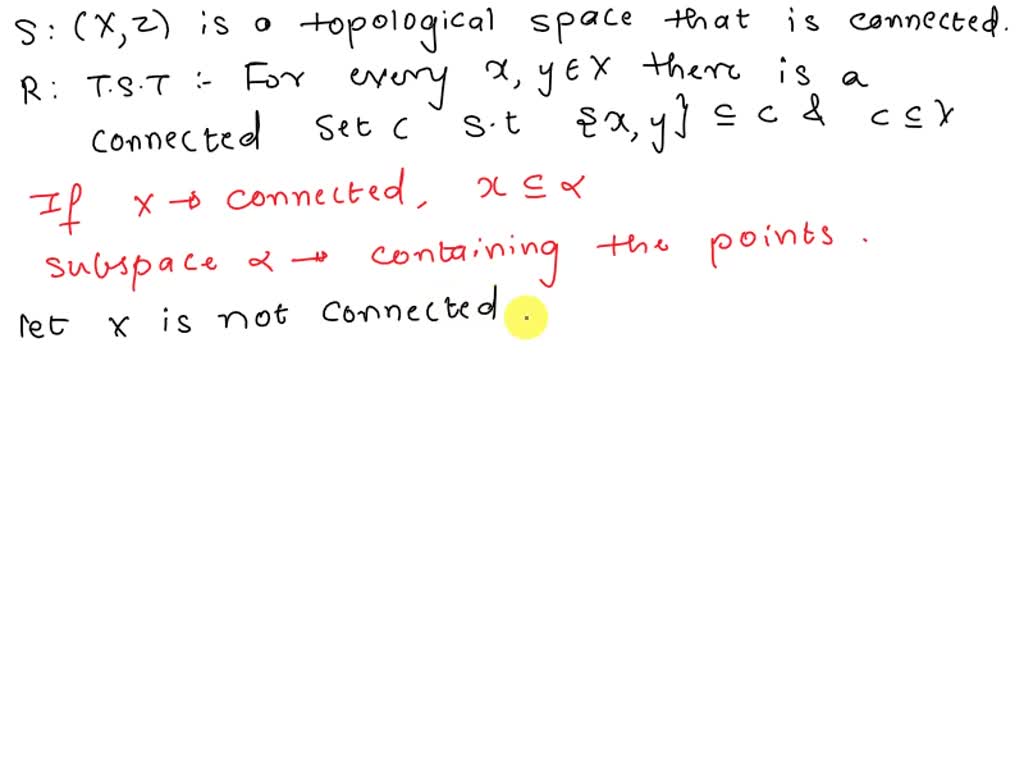 S: (X,Z) is a topological space that is connected.
R: T.S.T :- For every x, y ∈ X there is a
connected set c s.t {x, y} ⊆ c & c ⊆ X
If x → connected, x ⊆ α
subspace α → containing the points.
let x is not connected.